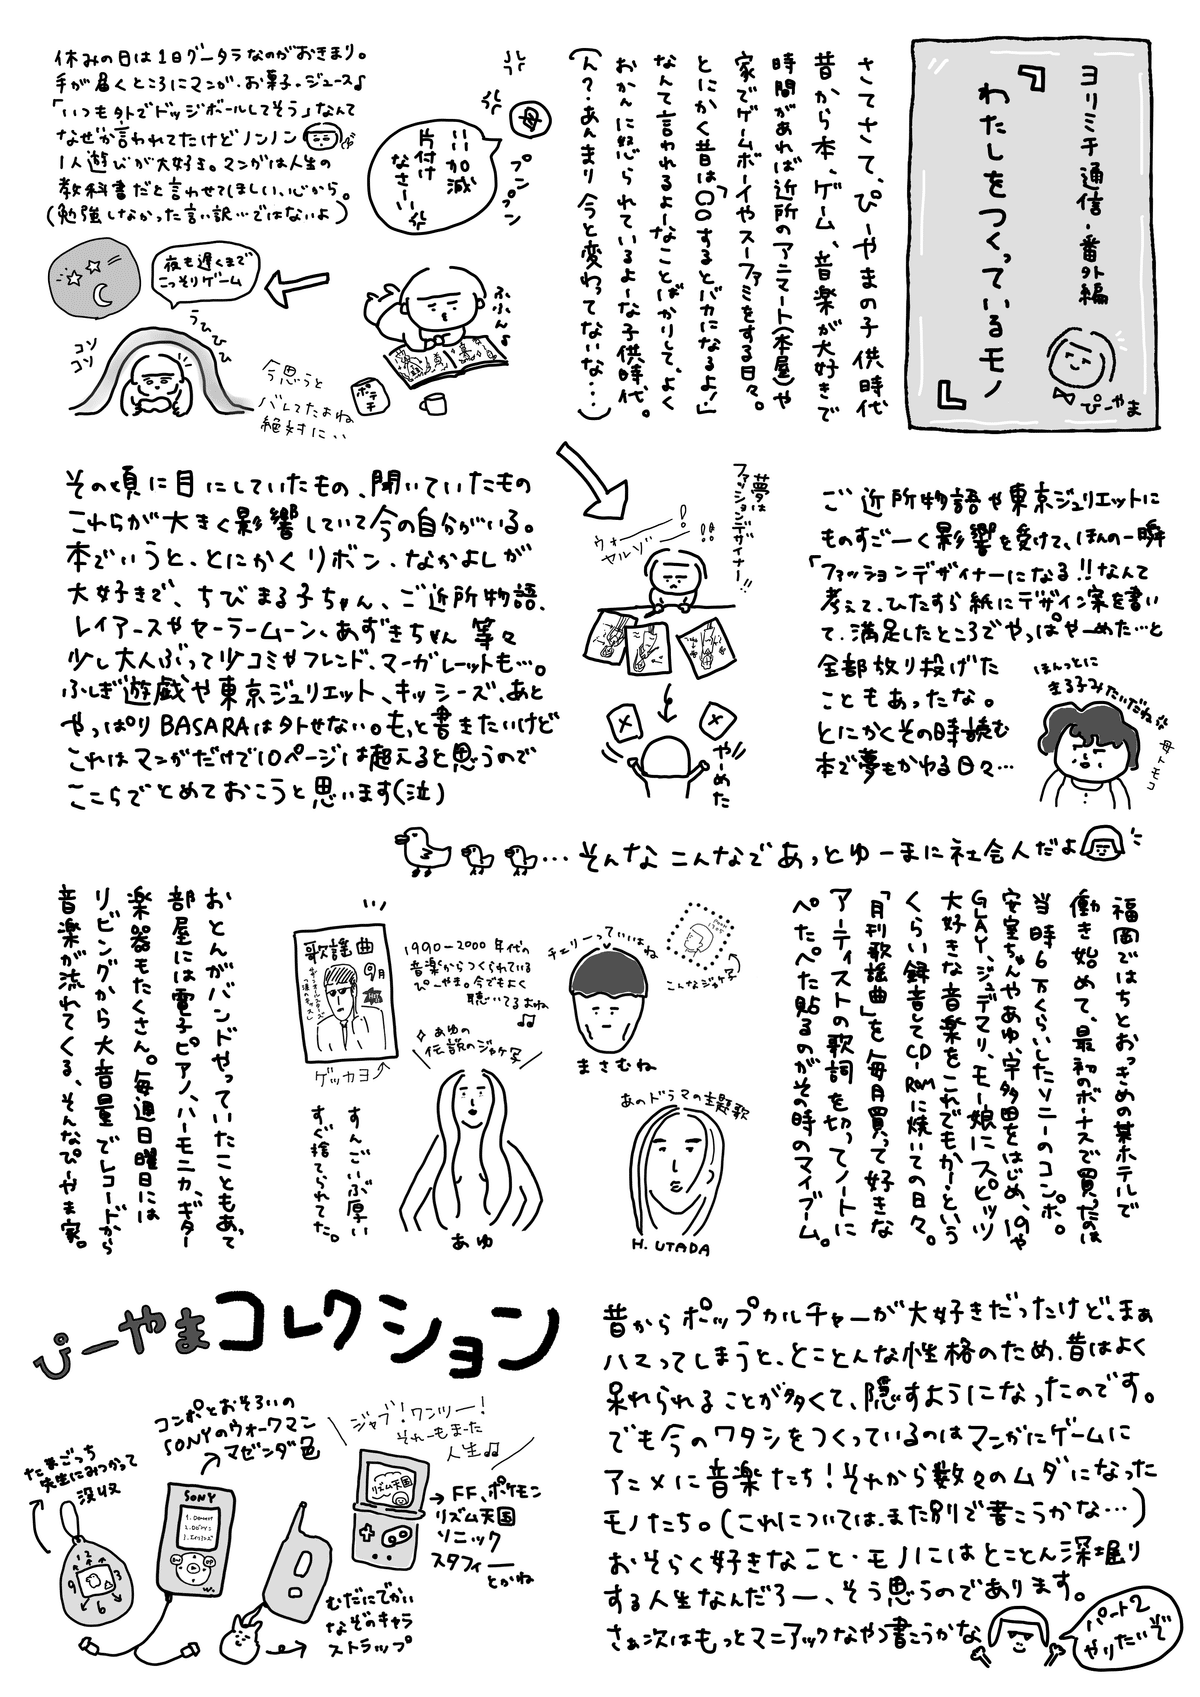 ヨリミチ通信・番外編
『わたしをつくっているモノ』
ぴーやま
さてさて、ぴーやまの子供時代
昔から本、ゲーム、音楽が大好きで
時間があれば近所のアニマート(本屋)や
家でゲームボーイやスーファミをする日々。
とにかく昔は「〇〇するとバカになるよ!」
なんて言われるよーなことばかりして、よく
おかんに怒られているよーな子供時代。
(ん?あんまり今と変わってないな…)
休みの日は1日グータラなのがおきまり。
手が届くところにマンガ・お菓子・ジュース♪
「いつも外でドッジボールしてそう」なんて
なぜか言われてたけどノンノン
1人遊びが大好き。マンガは人生の
教科書だと言わせてほしい、心から。
(勉強しなかった言い訳…ではないよ)
母
プンプン
いい加減
片付け
なさーい
ふふん♪
ポテチ
夜も遅くまで
こっそりゲーム
うひひひ
コソ
コソ
今思うと
バレてたよね
絶対に…
ご近所物語や東京ジュリエットに
ものすごーく影響を受けて、ほんの一瞬
「ファッションデザイナーになる!!なんて
考えて、ひたすら紙にデザイン案を書い
て、満足したところでやっぱやーめた…と
全部放り投げた
こともあったな。
とにかくその時読む
本で夢もかわる日々…
ほんっとに
まる子みたいだね
母トモコ
夢は
ファッションデザイナー!!
ウォー!
ヤルゾー!!
やーめた
その頃に目にしていたもの、聞いていたもの
これらが大きく影響していて今の自分がいる。
本でいうと、とにかくリボン、なかよしが
大好きで、ちびまる子ちゃん、ご近所物語、
レイアースやセーラームーン、あずきちゃん等々
少し大人ぶって少コミやフレンド、マーガレットも…。
ふしぎ遊戯や東京ジュリエット、キッシーズ、あと
やっぱりBASARAは外せない。もっと書きたいけど
これはマンガだけで10ページは超えると思うので
ここらでとめておこうと思います(泣)
…そんなこんなであっとゆーまに社会人だよ
福岡ではちとおっきめの某ホテルで
働き始めて、最初のボーナスで買ったのは
当時6万くらいしたソニーのコンポ。
安室ちゃんやあゆ、宇多田をはじめ、19や
GLAY、ジュディマリ、モー娘にスピッツ
大好きな音楽をこれでもか!という
くらい録音してCD-ROMに焼いての日々。
「月刊歌謡曲」を毎月買って好きな
アーティストの歌詞を切ってノートに
ぺたぺた貼るのがその時のマイブーム。
こんなジャケ写
チェリーっていいよね
まさむね
あのドラマの主題歌
H. UTADA
1990-2000年代の
音楽からつくられている
ぴーやま。今でもよく
聴いてるよね
あゆの
伝説のジャケ写
あゆ
歌謡曲
9月
ゲッカヨ
すんごいぶ厚い
すぐ捨てられてた。
おとんがバンドやっていたこともあって
部屋には電子ピアノ、ハーモニカ、ギター
楽器もたくさん。毎週日曜日には
リビングから大音量でレコードから
音楽が流れてくる、そんなぴーやま家。
ぴーやまコレクション
たまごっち
先生にみつかって
没収
コンポとおそろいの
SONYのウォークマン
マゼンダ色
SONY
12
9
3
6
むだにでかい
なぞのキャラ
ストラップ
ジャブ!ワンツー!
それーもまた
人生♫
リズム天国
FF、ポケモン
リズム天国
ソニック
スタフィー
とかね
昔からポップカルチャーが大好きだったけど、まぁ
ハマってしまうと、とことんな性格のため、昔はよく
呆れられることが多くて、隠すようになったのです。
でも今のワタシをつくっているのはマンガにゲームに
アニメに音楽たち!それから数々のムダになった
モノたち。(これについては、また別で書こうかな…)
おそらく好きなこと・モノにはとことん深堀り
する人生なんだろー、そう思うのであります。
さぁ次はもっとマニアックなやつ書こうかな
パート2
やりたいぞ